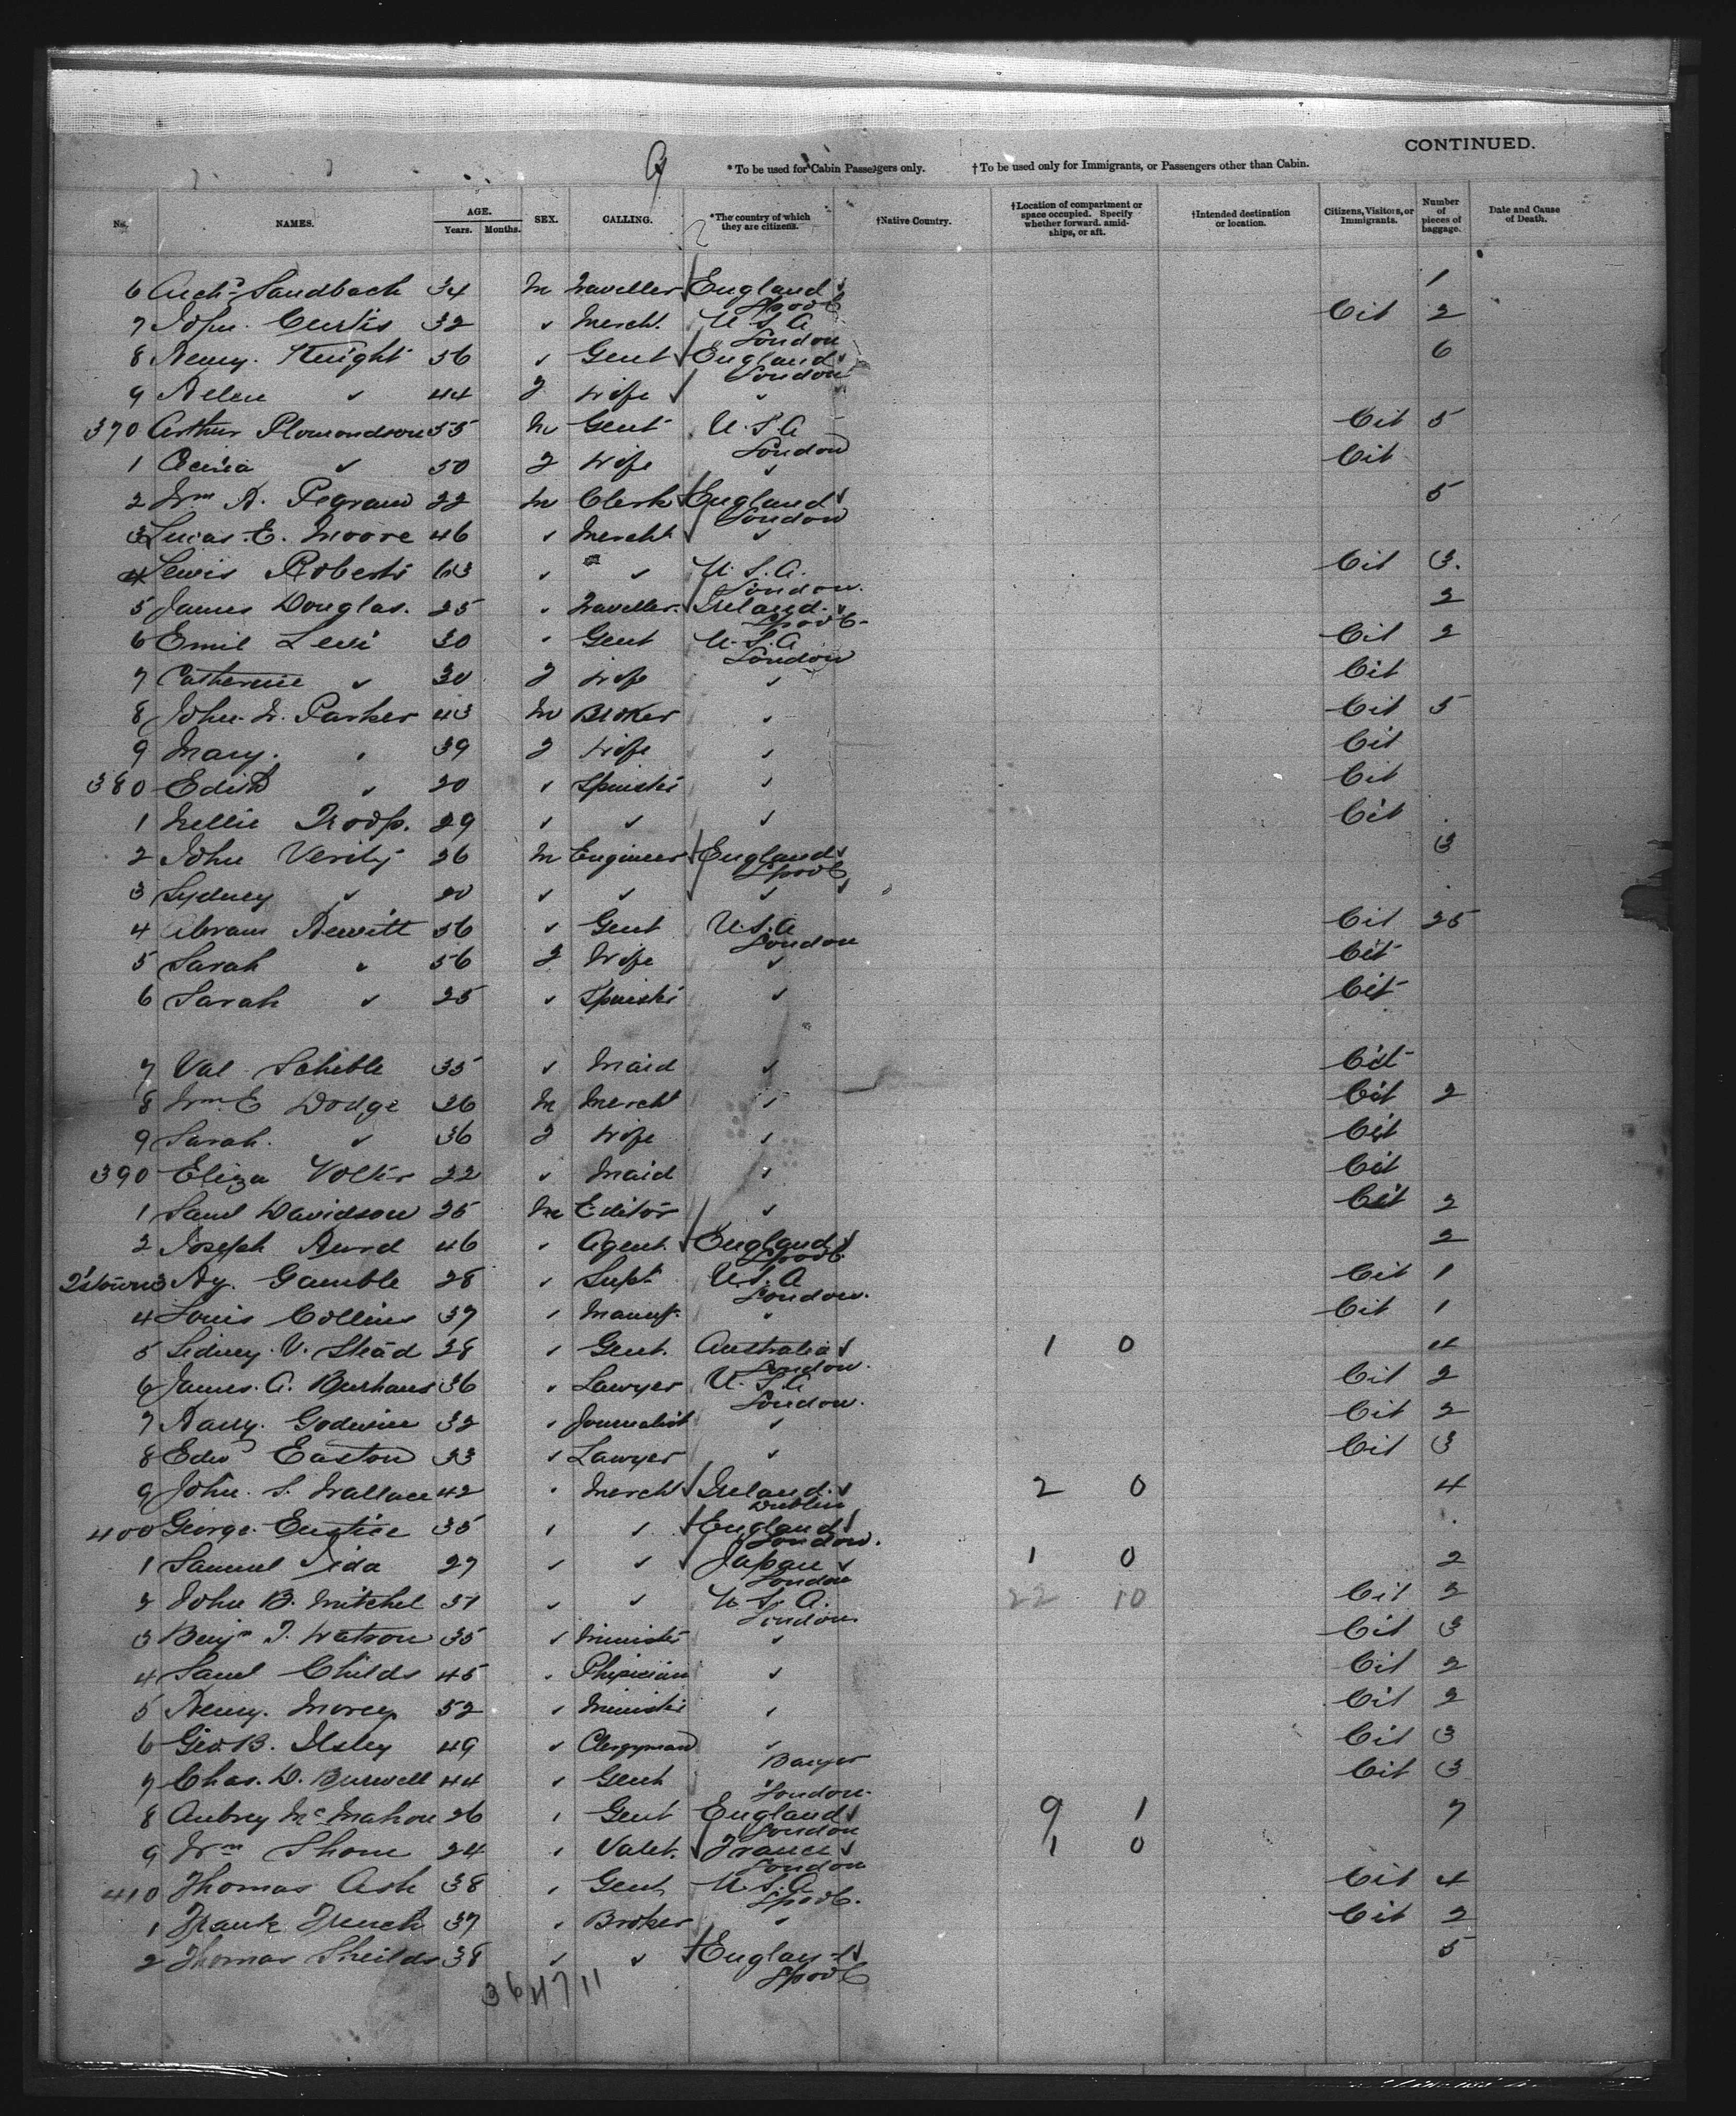 CONTINUED.
9
* To be used for Cabin Passengers only. † To be used only for Immigrants, or Passengers other than Cabin.
No. NAMES. AGE. Years. Months. SEX. CALLING. *The country of which they are citizens. †Native Country. †Location of compartment or space occupied. Specify whether forward, amidships, or aft. †Intended destination or location. Citizens, Visitors, or Immigrants. Number of pieces of baggage. Date and Cause of Death.
6 Archd Sandbach 34 M Traveller England 1
Lpool
7 John Curtis 32 " Mercht. U S A Cit 2
London
8 Henry Knight 56 " Gent England 6
London
9 Helen " 44 F Wife "
370 Arthur Plomondson 55 M Gent U.S.A Cit 5
London
1 " 50 F Wife " Cit
2 Wm H. Pegram 22 M Clerk England 5
London
3 Lucas E. Moore 46 " Mercht "
4 Lewis Roberts 63 " " U.S.A. Cit 3.
London.
5 James Douglas. 25 " Traveller. Ireland. 2
Lpool
6 Emil Levi 30 " Gent U.S.A Cit 2
London
7 Catherine " 30 F Wife " Cit
8 John W. Parker 43 M Broker " Cit 5
9 Mary. " 39 F Wife " Cit
380 Edith " 20 " Spinster " Cit
1 Nellie Troop. 29 " " " Cit
2 John Verity 26 M Engineer England 3
Lpool
3 Sydney " 20 " " "
4 Abram Hewitt 56 " Gent U.S.A Cit 25
London
5 Sarah " 56 F Wife " Cit
6 Sarah " 25 " Spinster " Cit
7 Val Scheble 35 " Maid " Cit
8 Wm E Dodge 36 M Mercht " Cit 2
9 Sarah. " 36 F Wife " Cit
390 Eliza 22 " Maid " Cit
1 Saml Davidson 25 M Editor " Cit 2
2 Joseph Hurd 46 " Agent England 2
Lpool
Q'stown 3 Hy. Gamble 28 " Supt U.S.A Cit 1
London.
4 Louis Collins 37 " Manuf. " Cit 1
5 Sidney V. Stead 28 " Gent. Australia 1 0 4
London.
6 James A. Burhans 36 " Lawyer U.S.A Cit 2
London.
7 Harry. Godwin 32 " Journalist " Cit 2
8 Edwd Easton 33 " Lawyer " Cit 3
9 John S. Wallace 42 " Mercht Ireland. 2 0 4
Dublin
400 George Eustice 35 " " England
London.
1 Samuel Iida 27 " " Japan 1 0 2
London
2 John B. Mitchel 51 " " U.S.A. 22 10 Cit 2
London
3 Benjn T. Watson 35 " Minister " Cit 3
4 Saml Childs 45 " Physician " Cit 2
5 Henry. Morey 52 " Minister " Cit 2
6 Geo B. Ilsley 49 " Clergyman " Cit 3
Bangor
7 Chas. D. Burwell 44 " Gent " Cit 3
London.
8 Aubrey McMahon 26 " Gent England 9 1 7
London
9 Wm Thom 24 " Valet. France 1 0
London
410 Thomas Ash 38 " Gent U S A Cit 4
Lpool.
1 Frank French 37 " Broker " Cit 2
2 Thomas Sheilds 38 " " England 5
Lpool
36 47 11